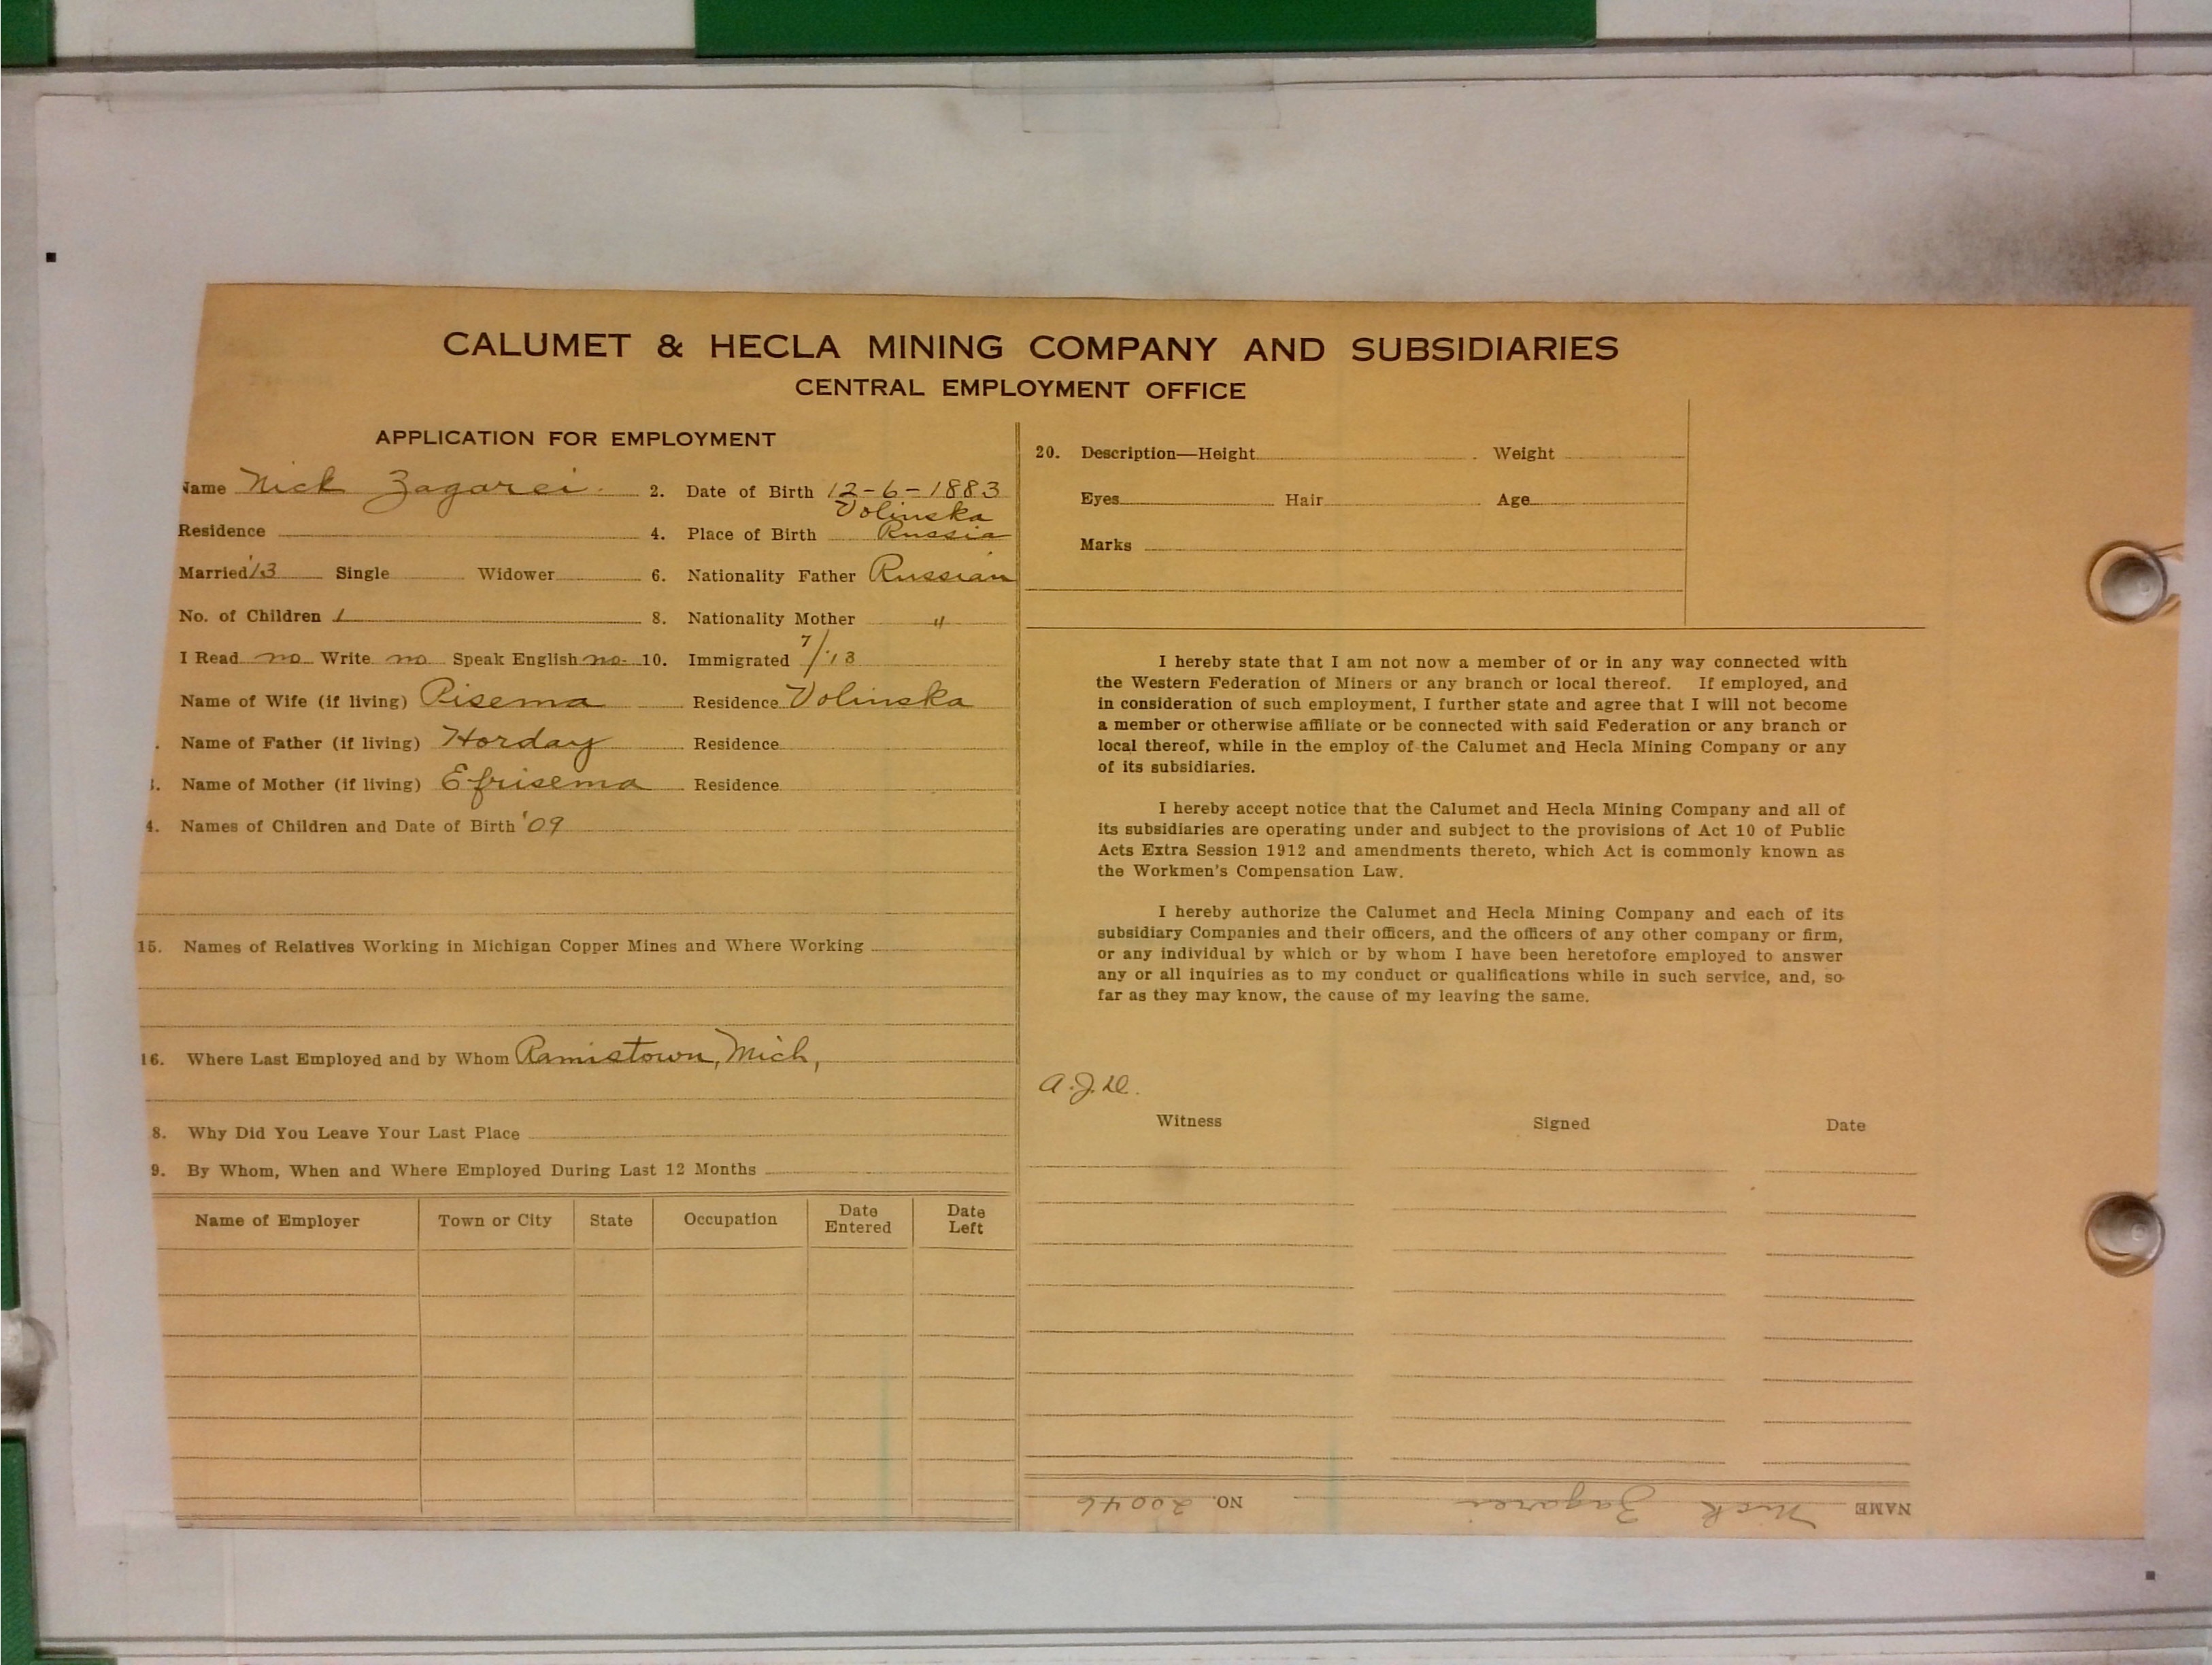 CALUMET & HECLA MINING COMPANY AND SUBSIDIARIES
CENTRAL EMPLOYMENT OFFICE
APPLICATION FOR EMPLOYMENT
Name Nick Zagarei. 2. Date of Birth 12-6-1883
Volinska
Residence 4. Place of Birth Russia
Married '13 Single Widower 6. Nationality Father Russian
No. of Children 1 8. Nationality Mother "
I Read no Write no Speak English no 10. Immigrated 7/'13
Name of Wife (if living) Risema Residence Volinska
Name of Father (if living) Horday Residence
Name of Mother (if living) Efrisema Residence
4. Names of Children and Date of Birth '09
15. Names of Relatives Working in Michigan Copper Mines and Where Working
16. Where Last Employed and by Whom Ramistown, Mich,
8. Why Did You Leave Your Last Place
9. By Whom, When and Where Employed During Last 12 Months
Name of Employer Town or City State Occupation Date Entered Date Left
20. Description—Height Weight
Eyes Hair Age
Marks
I hereby state that I am not now a member of or in any way connected with
the Western Federation of Miners or any branch or local thereof. If employed, and
in consideration of such employment, I further state and agree that I will not become
a member or otherwise affiliate or be connected with said Federation or any branch or
local thereof, while in the employ of the Calumet and Hecla Mining Company or any
of its subsidiaries.
I hereby accept notice that the Calumet and Hecla Mining Company and all of
its subsidiaries are operating under and subject to the provisions of Act 10 of Public
Acts Extra Session 1912 and amendments thereto, which Act is commonly known as
the Workmen's Compensation Law.
I hereby authorize the Calumet and Hecla Mining Company and each of its
subsidiary Companies and their officers, and the officers of any other company or firm,
or any individual by which or by whom I have been heretofore employed to answer
any or all inquiries as to my conduct or qualifications while in such service, and, so
far as they may know, the cause of my leaving the same.
Witness Signed Date
NAME Nick Zagarei NO. 20046